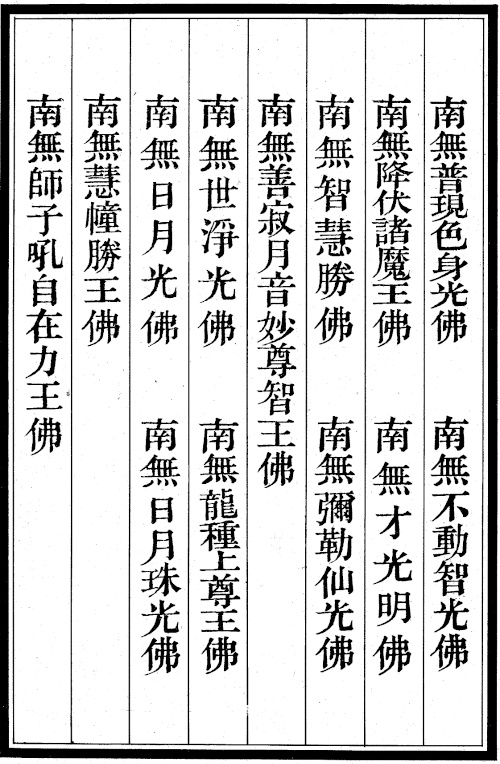 南無普現色身光佛　南無不動智光佛
南無降伏諸魔王佛　南無才光明佛
南無智慧勝佛　南無彌勒仙光佛
南無善寂月音妙尊智王佛
南無世淨光佛　南無龍種上尊王佛
南無日月光佛　南無日月珠光佛
南無慧幢勝王佛
南無師子吼自在力王佛